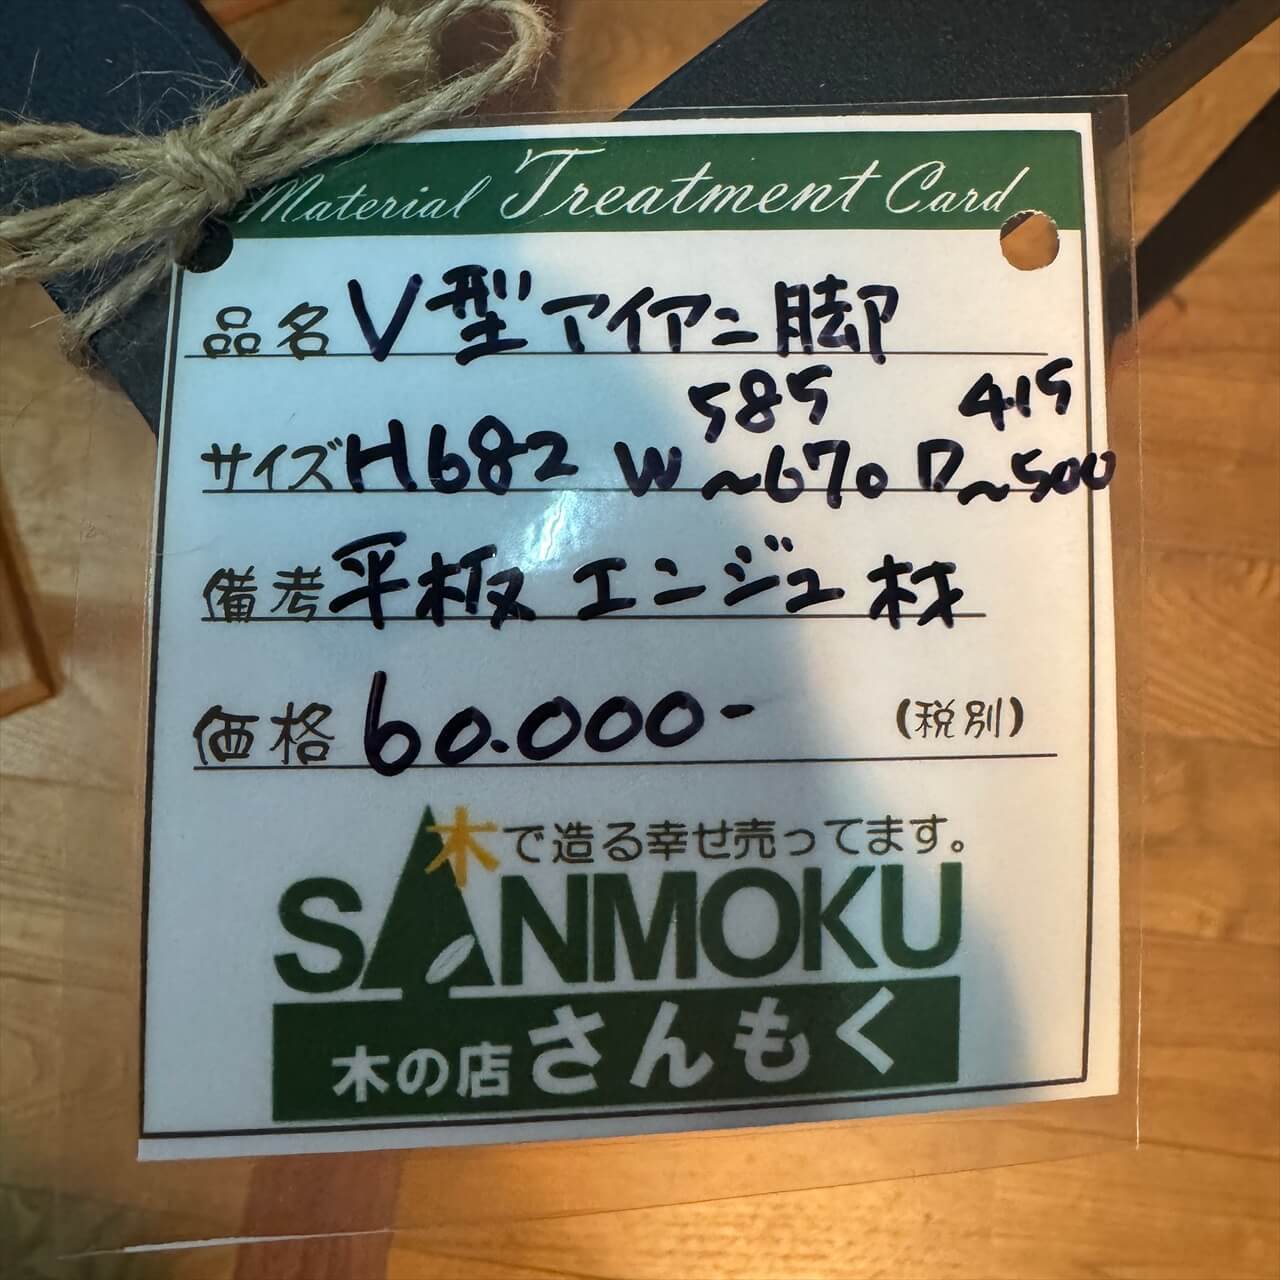 Material Treatment Card
品名 V型アイアン脚
585 415
サイズ H682 W~670 D~500
備考 平板 エンジュ材
価格 60.000- (税別)
木で造る幸せ売ってます。
SANMOKU
木の店 さんもく